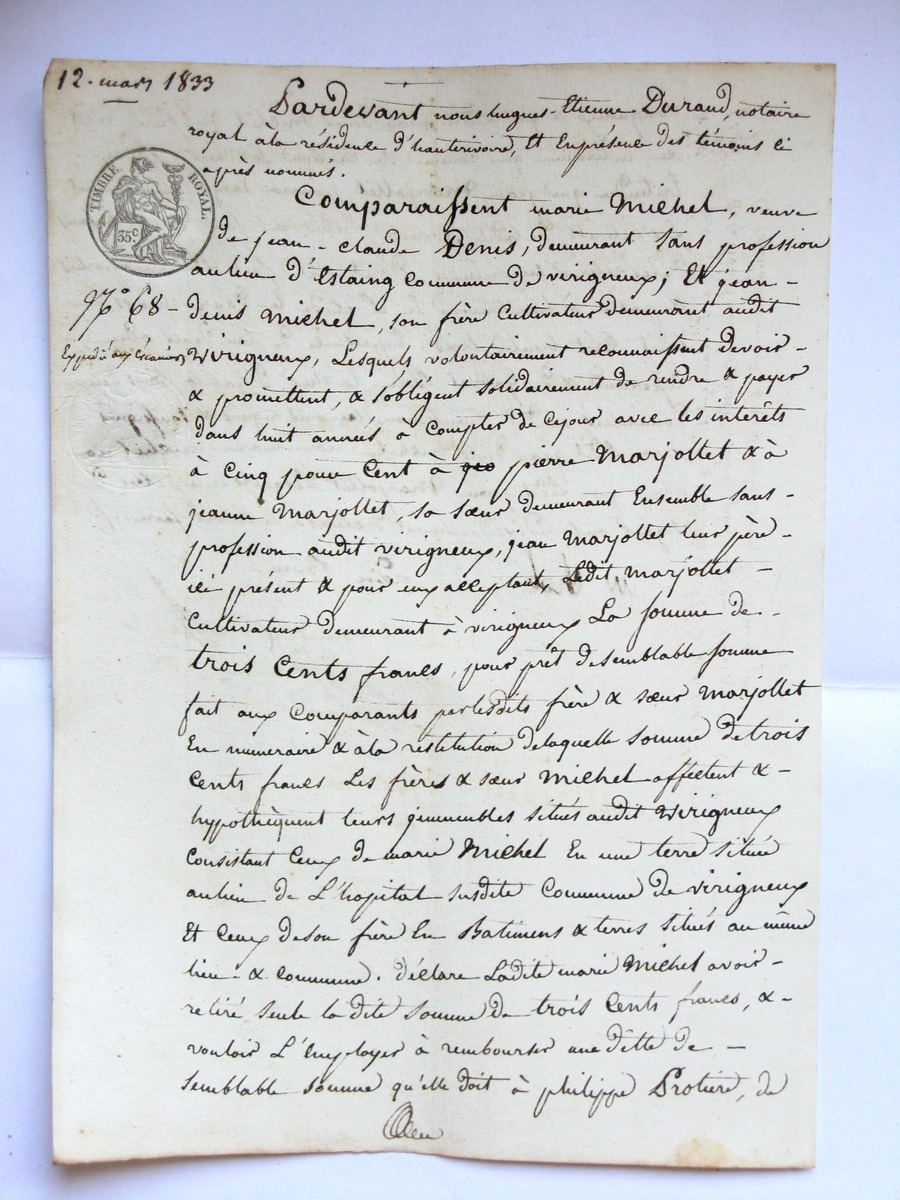 12. mars 1833
Pardevant nous hugues-Etienne Durand, notaire
royal à la résidence d'hauterivoire, Et En présence des témoins ci
après nommés.
TIMBRE ROYAL.
35 c
Comparaissent marie Michel, veuve
de jean-claude Denis, demeurant sans profession
au lieu d'Estaing commune de virigneux; Et jean-
N.° 68 - denis Michel, son frère Cultivateur demeurant audit
Expédié aux Créanciers
Virigneux, Lesquels volontairement reconnaissent devoir-
& promettent, & s'obligent solidairement de rendre & payer
dans huit années à compter de ce jour avec les intérêts
à cinq pour Cent à pierre Marjollet & à
jeanne Marjollet, sa sœur demeurant Ensemble sans-
profession audit virigneux, jean Marjollet leur père-
ici présent & pour eux acceptant, Ledit Marjollet-
Cultivateur demeurant à virigneux La somme de-
trois Cents francs, pour prêt de semblable somme
fait aux Comparants par lesdits frère & sœur Marjollet
En numeraire & à la restitution de laquelle somme de trois
Cents francs Les frères & sœur Michel affectent &-
hypothèquent leurs immeubles situés audit Virigneux
Consistant Ceux de marie Michel En une terre située
au lieu de L'hopital susdite Commune de virigneux
Et Ceux de son frère En Batimens & terres situés au même
lieu & commune. déclare Ladite marie Michel avoir-
retiré seule la dite somme de trois Cents francs, &-
vouloir L'Employer à rembourser une dette de -
semblable somme qu'elle doit à philippe Protière, de